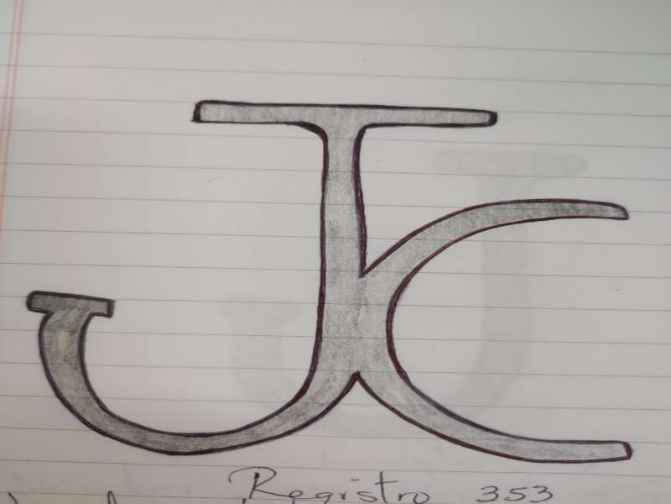 JC
Registro 353